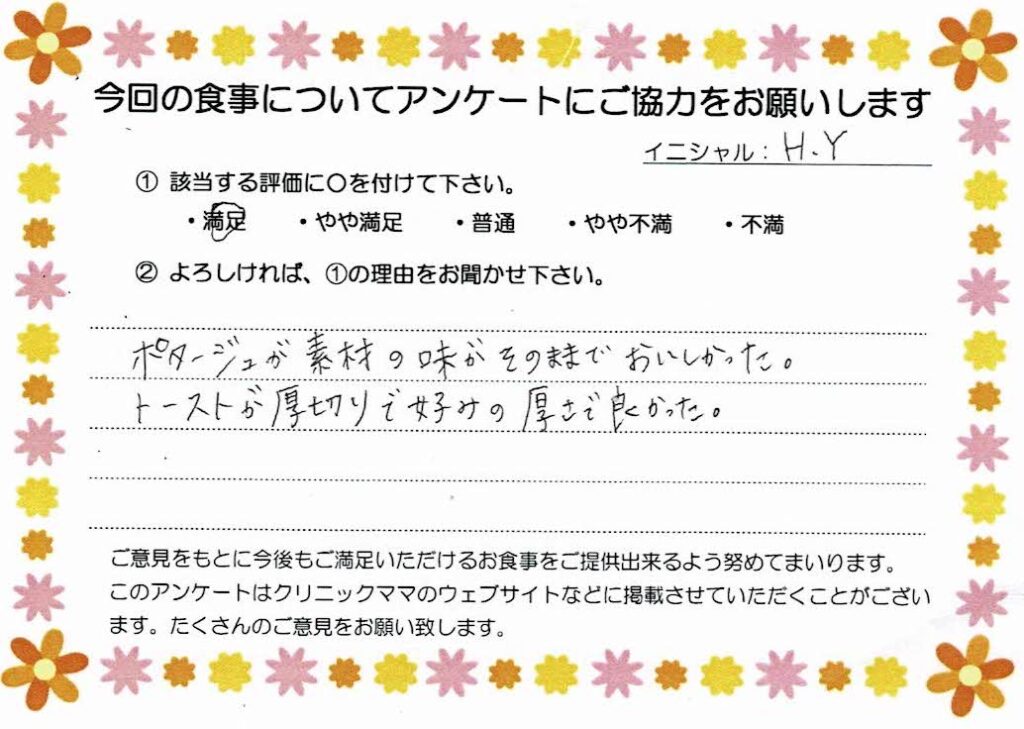 今回の食事についてアンケートにご協力をお願いします
イニシャル：H.Y
① 該当する評価に〇を付けて下さい。
・満足 ・やや満足 ・普通 ・やや不満 ・不満
② よろしければ、①の理由をお聞かせ下さい。
ポタージュが素材の味がそのままでおいしかった。
トーストが厚切りで好みの厚さで良かった。
ご意見をもとに今後もご満足いただけるお食事をご提供出来るよう努めてまいります。
このアンケートはクリニックママのウェブサイトなどに掲載させていただくことがござい
ます。たくさんのご意見をお願い致します。